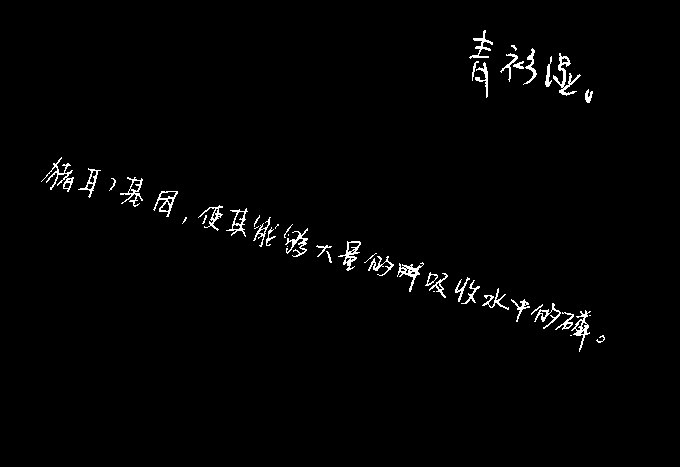 青衫湿。
猪耳基因，使其能够大量的吸收水中的磷。